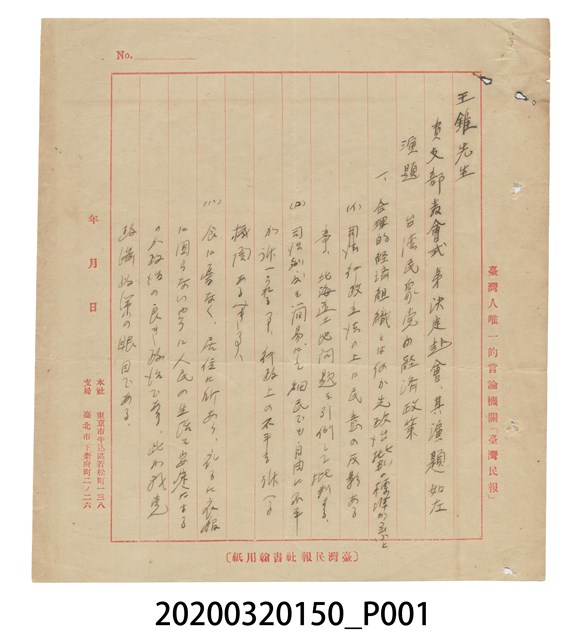 No.
臺灣人唯一的言論機關「臺灣民報」
王錐先生
貴支部發會式弟決定赴會、其演題如左
演題 台湾民眾党の経済政策
一、合理的経済組織とは何か先政治批判の標準が
(イ)司法行政立法の上に民意の反影ある
事、北海道土地問題を引例して批判する、
(ロ)司法制度も簡易にして細民でも自由に不平
が訴へられる事、行政上の不平も訴へる
機関ある事、
(ハ)食に善なく、居住に所あり、に衣服
に困らない やうに人民の生活を安定にする
の人政治の良き政治である、此が我党
経済政策の眼目である、
年 月 日
本社 東京市牛込區若松町一三八
支局 臺北市下奎府町二ノ二六
〔臺灣民報社書翰用紙〕
20200320150_P001